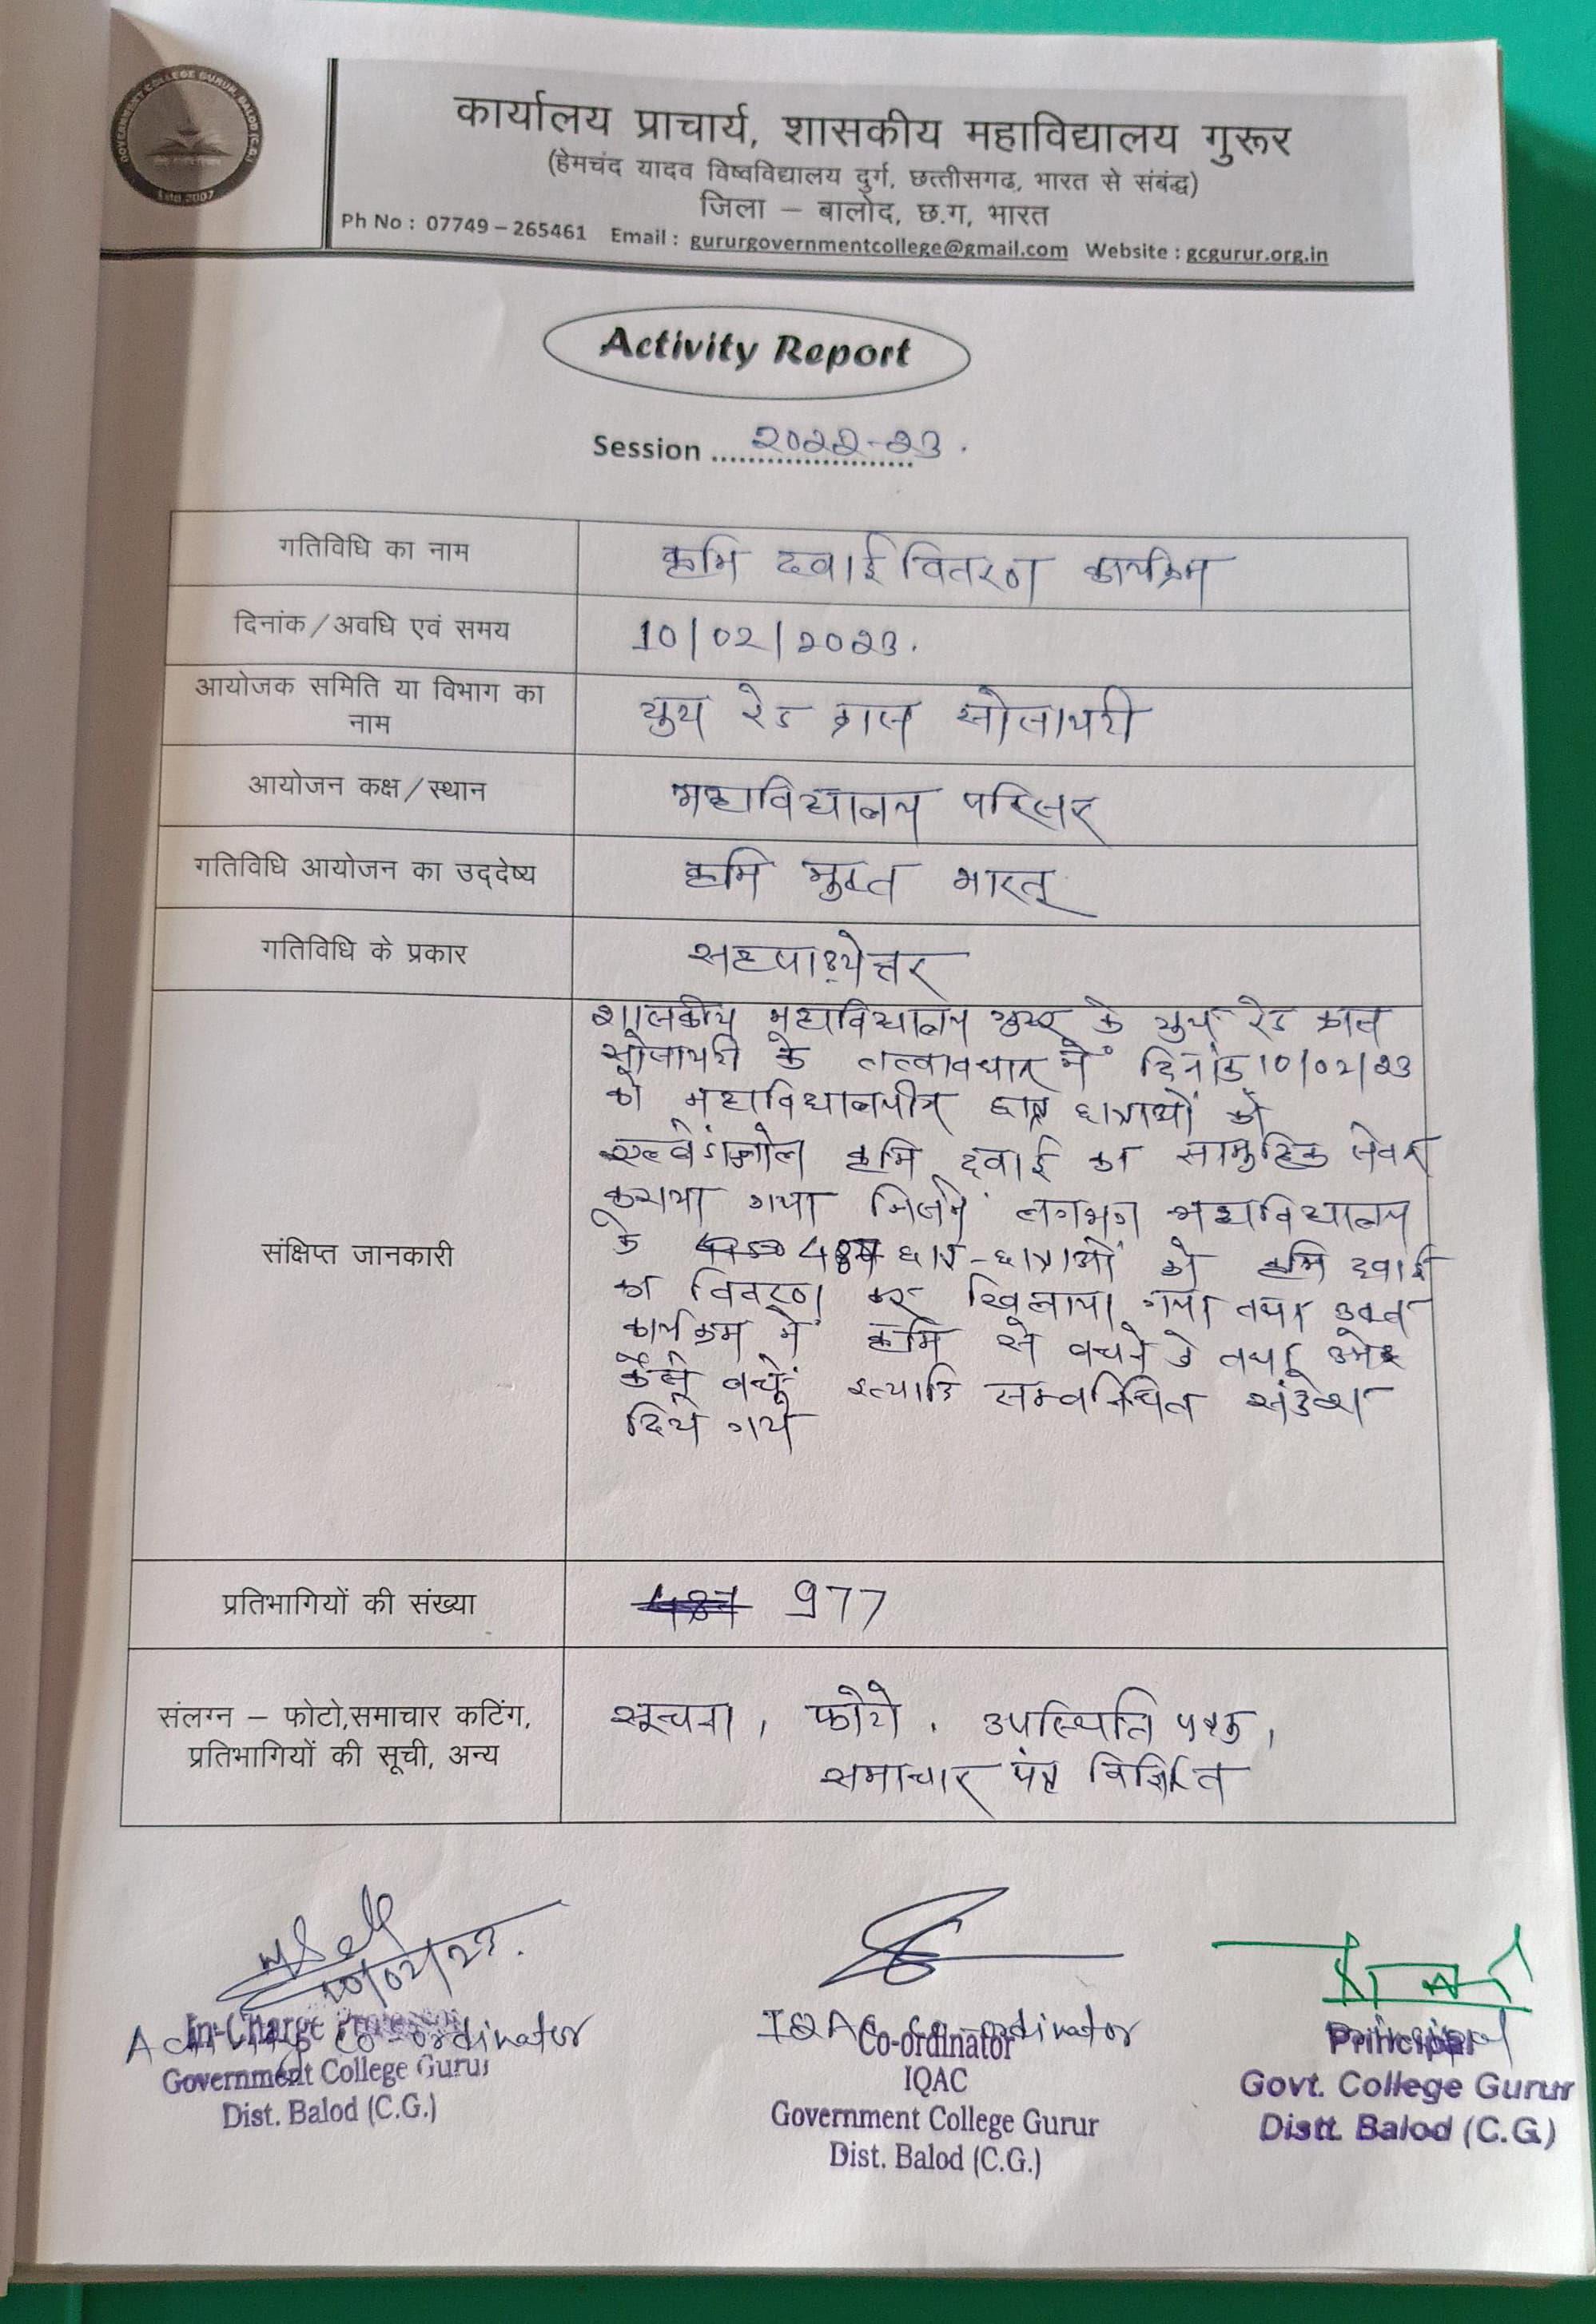 GOVERNMENT COLLEGE GURUR, BALOD (C.G.)
Estd. 2007
कार्यालय प्राचार्य, शासकीय महाविद्यालय गुरूर
(हेमचंद यादव विष्वविद्यालय दुर्ग, छत्तीसगढ, भारत से संबंद्ध)
जिला – बालोद, छ.ग, भारत
Ph No : 07749 – 265461 Email : gururgovernmentcollege@gmail.com Website : gcgurur.org.in
Activity Report
Session ....2022-23.
गतिविधि का नाम
कृमि दवाई वितरण कार्यक्रम
दिनांक/अवधि एवं समय
10/02/2023.
आयोजक समिति या विभाग का
नाम
युथ रेड क्रास सोसायटी
आयोजन कक्ष/स्थान
महाविद्यालय परिसर
गतिविधि आयोजन का उद्‌देष्य
कृमि मुक्त भारत
गतिविधि के प्रकार
सहपाठ्येत्तर
संक्षिप्त जानकारी
शासकीय महाविद्यालय गुरूर के युथ रेड क्रास
सोसायटी के तत्वावधान में दिनांक 10/02/23
को महाविद्यालयीन छात्र छात्राओं को
एल्बेंडाजोल कृमि दवाई का सामुहिक सेवन
कराया गया जिसमें लगभग महाविद्यालय
के छात्र-छात्राओं को कृमि दवाई
का वितरण कर खिलाया गया तथा उक्त
कार्यक्रम में कृमि से बचने के तथा उससे
कैसे बचें इत्यादि सम्बन्धित संदेश
दिये गये
प्रतिभागियों की संख्या
977
संलग्न – फोटो,समाचार कटिंग,
प्रतिभागियों की सूची, अन्य
सूचना, फोटो, उपस्थिति पत्रक,
समाचार पत्र विज्ञप्ति
10/02/23.
In-Charge Professor
Activity Co-ordinator
Government College Gurur
Dist. Balod (C.G.)
IQAC Co-ordinator
Co-ordinator
IQAC
Government College Gurur
Dist. Balod (C.G.)
Principal
Govt. College Gurur
Distt. Balod (C.G.)